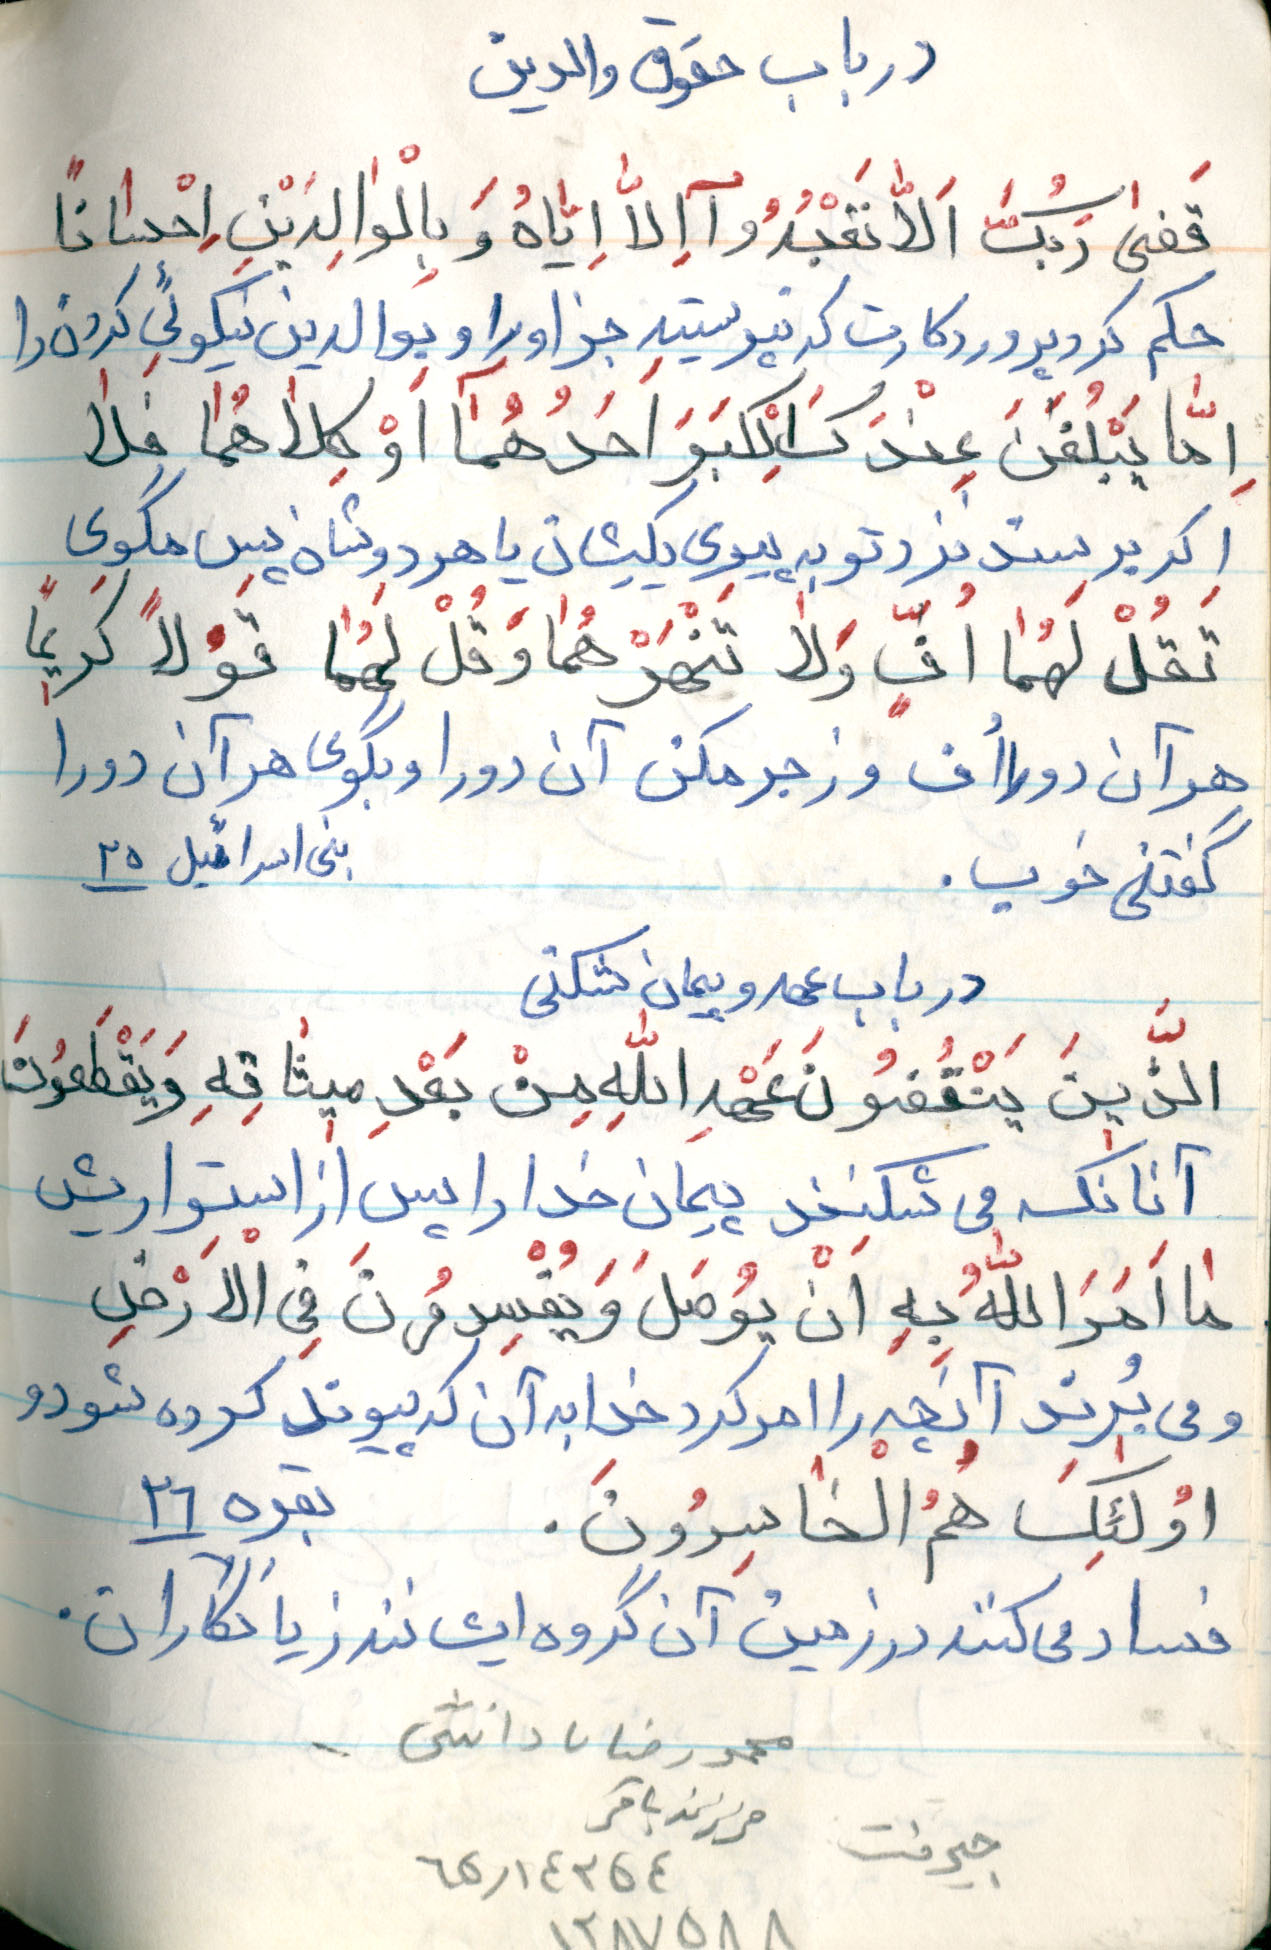 در باب حقوق والدین
قَضیٰ رَبُّکَ اَلّاٰ تَعْبُدُوآ اِلاّٰ اِیّٰاهُ وَ بِالْوٰالِدَیْنِ اِحْسٰاناً
حکم کرد پروردکارت که نپرستید جز او را و بوالدین نیکوئی کردن را
اِمّٰا یَبْلُغَنَّ عِنْدَکَ الْکِبَرَ اَحَدُهُمٰآ اَوْ کِلاٰهُمٰا فَلاٰ
اِکر برسند نزد تو به پیری یکیشان یا هر دوشان پس مگوی
تَقُلْ لَهُمٰا اُفٍّ وَلاٰ تَنْهَرْ هُمٰا وَ قُلْ لَهُمٰا قَوْلاً کَریماً
هر آن دو را اُف و زجر مکن آن دو را و بگوی هر آن دو را
گفتنی خوب .
بنی اسرائیل ۲۵
در باب عهد و پیمان شکنی
الَّذینَ یَنْقُضُونَ عَهْدِ اللّٰهِ مِنْ بَعْدِ میثٰاقِهِ وَ یَقْطَعُونَ
آنانکه می شکنند پیمان خدا را پس از استواریش
مٰا اَمَرَ اللّٰهُ بِهِ اَنْ یُوصَلَ وَ یُفْسِدُونَ فِی الْاَرْضِ
و می بُرند آنچه را امر کرد خدا به آن که پیوند کرده شود و
اوُلٰئِکَ هُمُ الْخٰاسِرُونَ .
بقره ۲٦
فساد می کنند در زمین آن گروه ایشانند زیانکاران .
محمد رضا دانشی
فرزند باقر
جیرفت